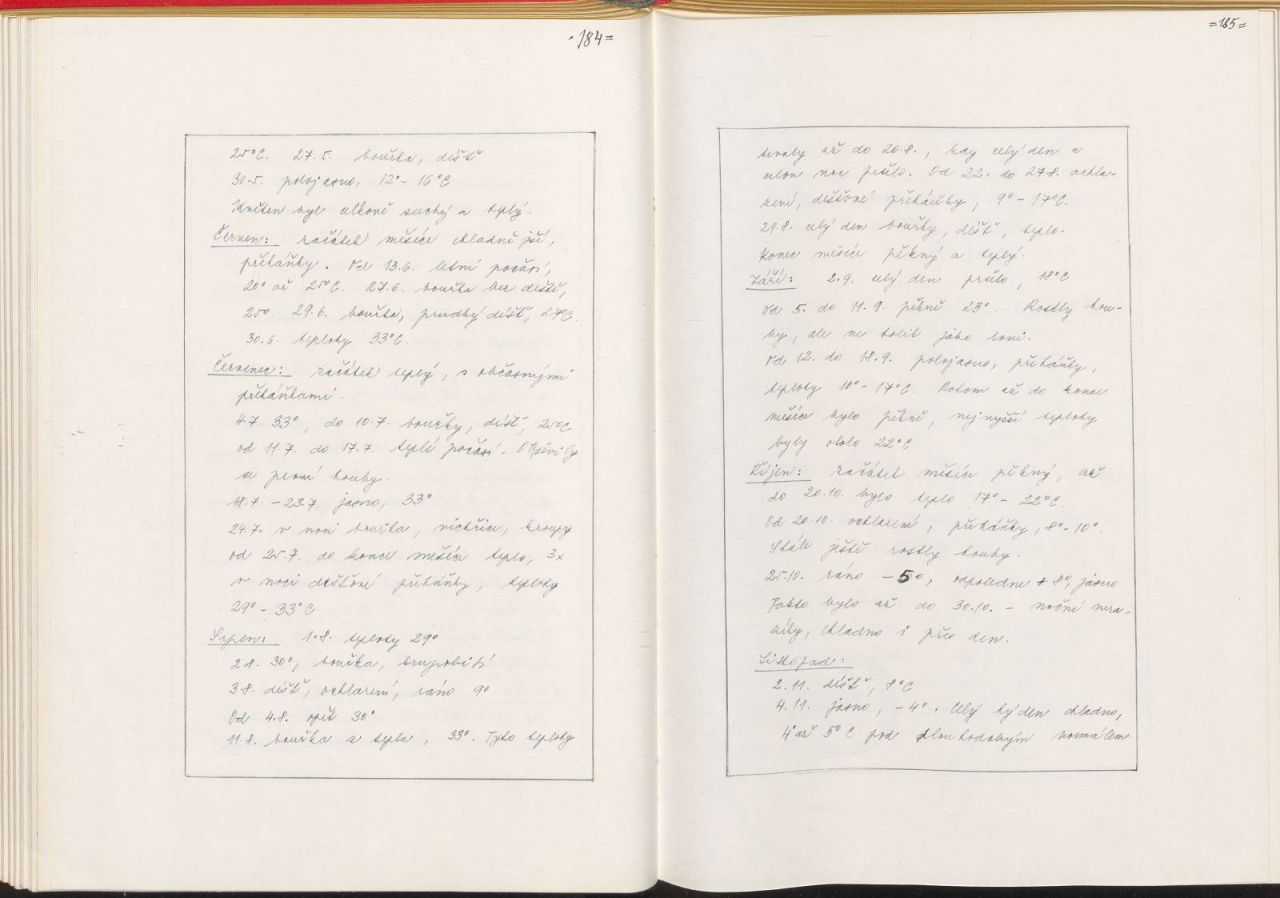 184=
25°C. 27.5. bouřka, déšť
30.5. polojasno, 12°- 16°C
Květen byl celkově suchý a teplý.
Červen: začátek měsíce chladnější,
přeháňky. Od 13.6. letní počasí,
20° až 25°C. 27.6. bouřka bez deště,
25°. 29.6. bouřka, prudký déšť, 27°C.
30.6. teploty 33°C.
Červenec: začátek teplý, s občasnými
přeháňkami.
4.7. 33°, do 10.7. bouřky, déšť, 25°C
od 11.7. do 17.7. teplé počasí. Objevily
se první houby.
18.7. - 23.7. jasno, 33°
24.7. v noci bouřka, vichřice, kroupy
od 25.7. do konce měsíce teplo, 3x
v noci dešťové přeháňky, teploty
29° - 33°C
Srpen: 1.8. teploty 29°
2.8. 30°, bouřka, krupobití
3.8. déšť, ochlazení, ráno 9°
Od 4.8. opět 30°
11.8. bouřka z tepla, 33°. Tyto teploty
=185=
trvaly až do 20.8., kdy celý den a
celou noc pršelo. Od 22. do 27.8. ochla-
zení, dešťové přeháňky, 9° - 17°C.
29.8. celý den bouřky, déšť, teplo.
Konec měsíce pěkný a teplý.
Září: 2.9. celý den pršelo, 18°C
Od 5. do 11.9. pěkně 23°. Rostly hou-
by, ale ne tolik jako loni.
Od 12. do 18.9. polojasno, přeháňky,
teploty 10° - 17°C. Potom až do konce
měsíce bylo pěkně, nejvyšší teploty
byly okolo 22°C
Říjen: začátek měsíce pěkný, až
do 20.10. bylo teplo 17° - 22°C.
Od 20.10. ochlazení, přeháňky, 8°- 10°.
Stále ještě rostly houby.
25.10. ráno - 5°, odpoledne + 8°, jasno
Takto bylo až do 30.10. - noční mra-
zíky, chladno i přes den.
Listopad:
2.11. déšť, 8°C
4.11. jasno, - 4°. Celý týden chladno,
4° až 5°C pod dlouhodobým normálem